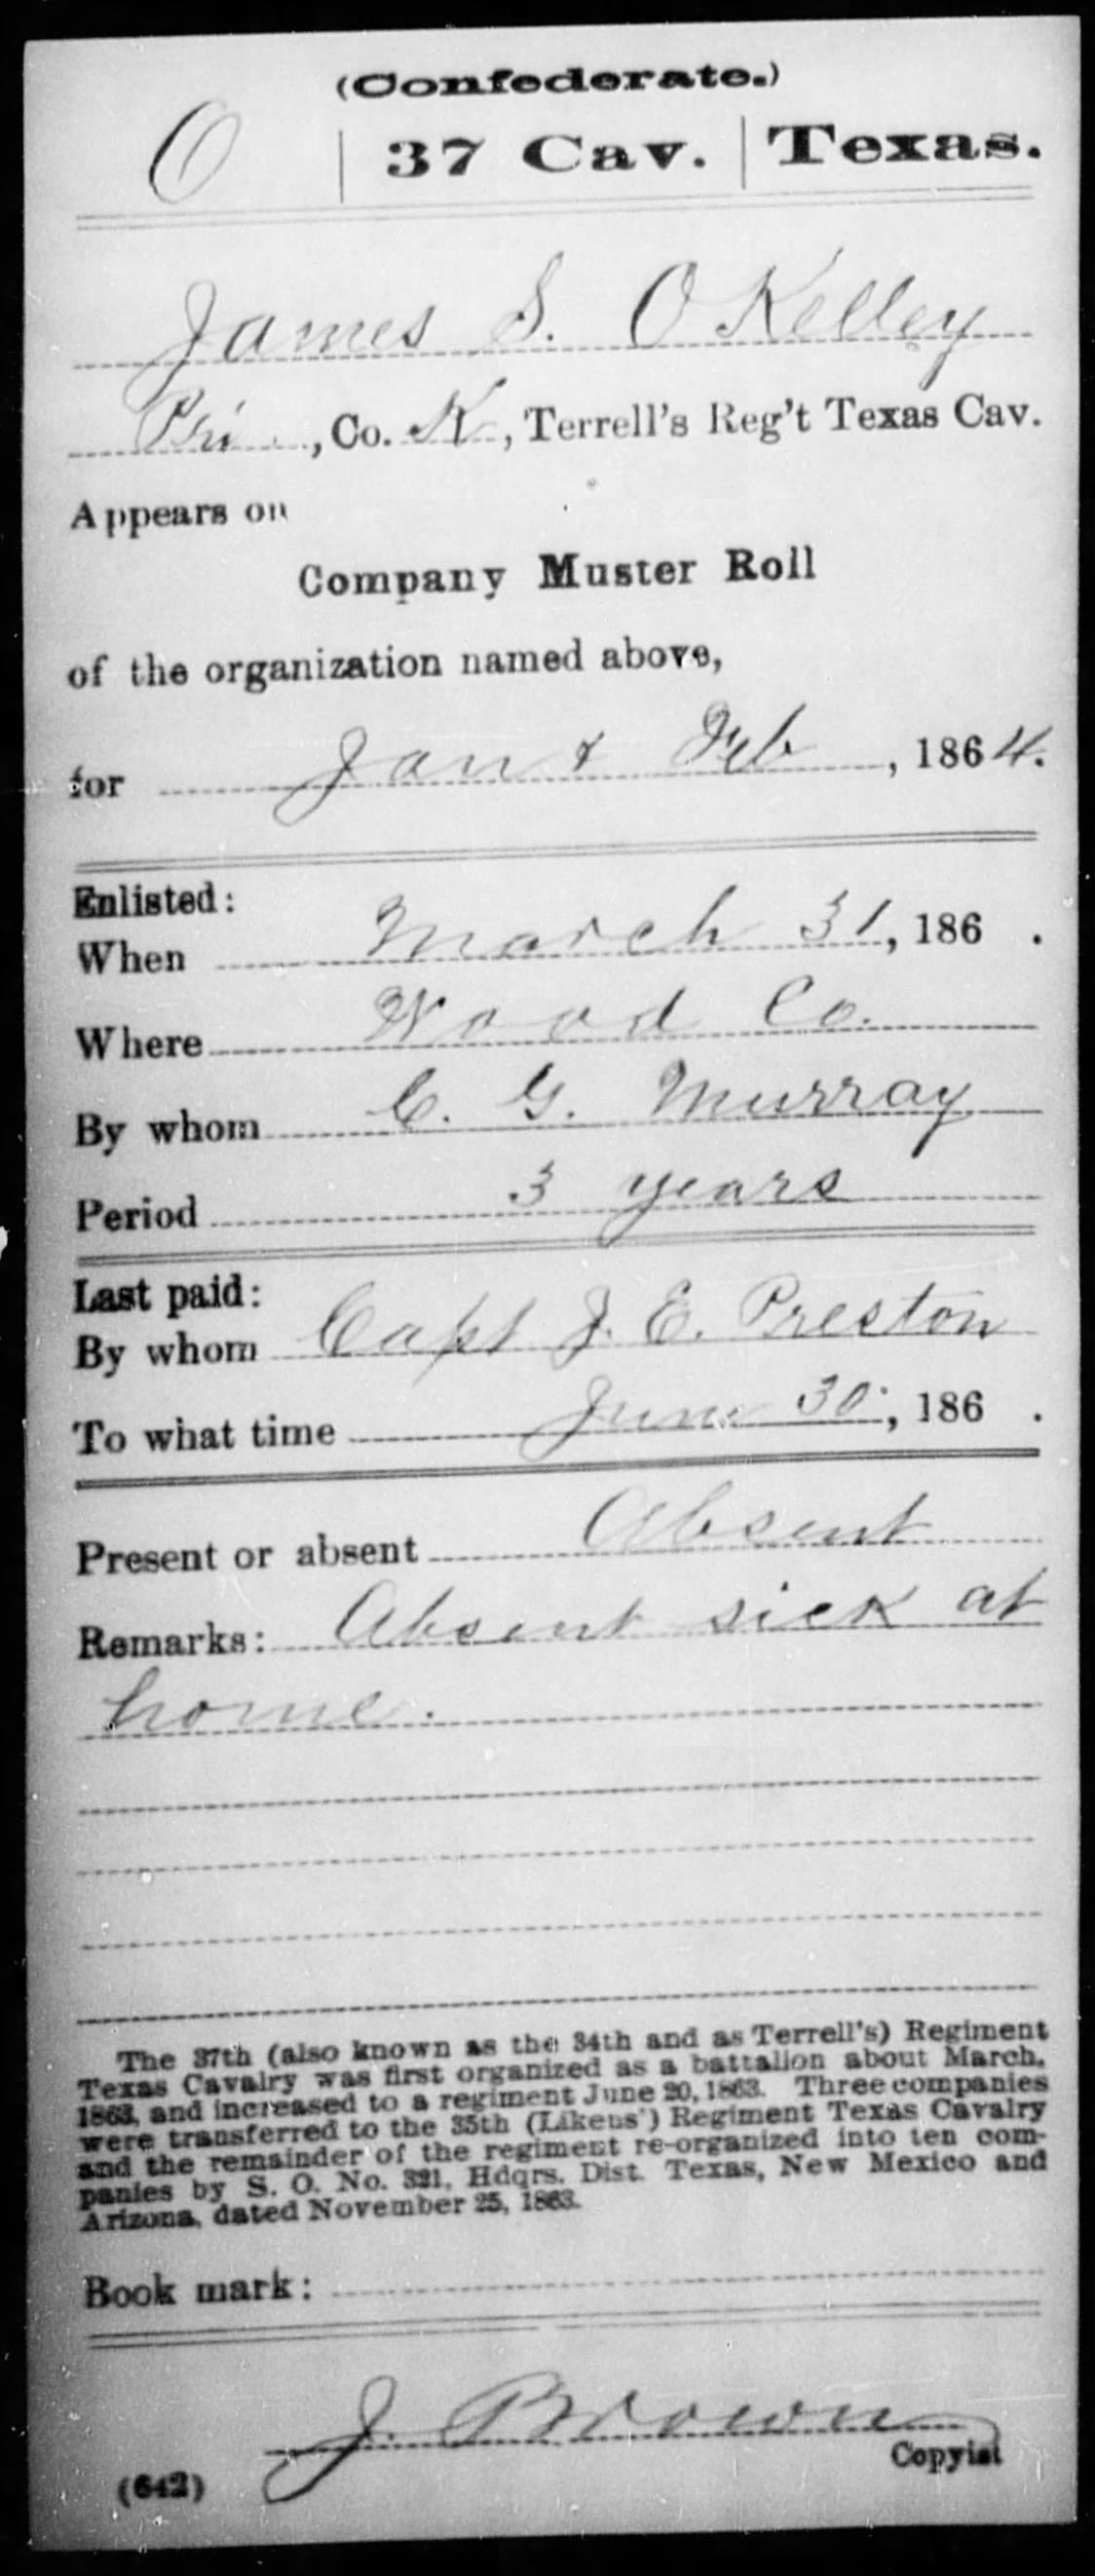 (Confederate.)
O | 37 Cav. | Texas.
James S. O Kelley
Pri , Co. K , Terrell's Reg't Texas Cav.
Appears on
Company Muster Roll
of the organization named above,
for Jan & Feb , 1864.
Enlisted:
When March 31, 186 .
Where Wood Co.
By whom C. G. Murray
Period 3 years
Last paid:
By whom Capt J. E. Preston
To what time June 30, 186 .
Present or absent Absent
Remarks: Absent sick at
home.
The 37th (also known as the 34th and as Terrell's) Regiment
Texas Cavalry was first organized as a battalion about March,
1863, and increased to a regiment June 20, 1863. Three companies
were transferred to the 35th (Likens') Regiment Texas Cavalry
and the remainder of the regiment re-organized into ten com-
panies by S. O. No. 321, Hdqrs. Dist. Texas, New Mexico and
Arizona, dated November 25, 1863.
Book mark:
J. Brown
Copyist
(642)